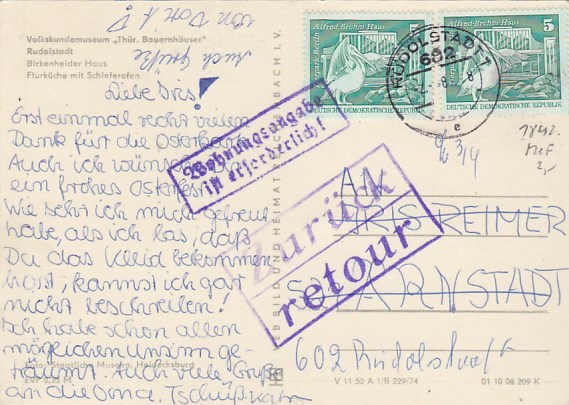 von Dott
Auch Grüße
Volkskundemuseum „Thür. Bauernhäuser"
Rudolstadt
Birkenheider Haus
Flurküche mit Schieferofen
Liebe Iris!
Erst einmal recht vielen
Dank für die Osterkarte.
Auch ich wünsche Dir
ein frohes Osterfest.
Wie sehr ich mich gefreut
habe, als ich las, daß
Du das Kleid bekommen
hast, kannst ich gar
nicht beschreiben!
Ich habe schon allen
möglichen Unsinn ge-
träumt. Auch viele Grüße
an die Oma. Tschüß
Foto: Staatliche Museen, Heidecksburg
EVP 0,25 M
BILD UND HEIMAT REICHENBACH I. V.
Alfred-Brehm-Haus
Tierpark Berlin
5
DEUTSCHE DEMOKRATISCHE REPUBLIK
Alfred-Brehm-Haus
5
DEUTSCHE DEMOKRATISCHE REPUBLIK
RUDOLSTADT 1
682
e
1842
MeF
2,-
Wohnungsangabe
ist erforderlich!
Zurück
retour
An
IRIS REIMER
50 ARNSTADT
602 Rudolstadt
V 11 50 A 1/B 229/74
01 10 06 209 K